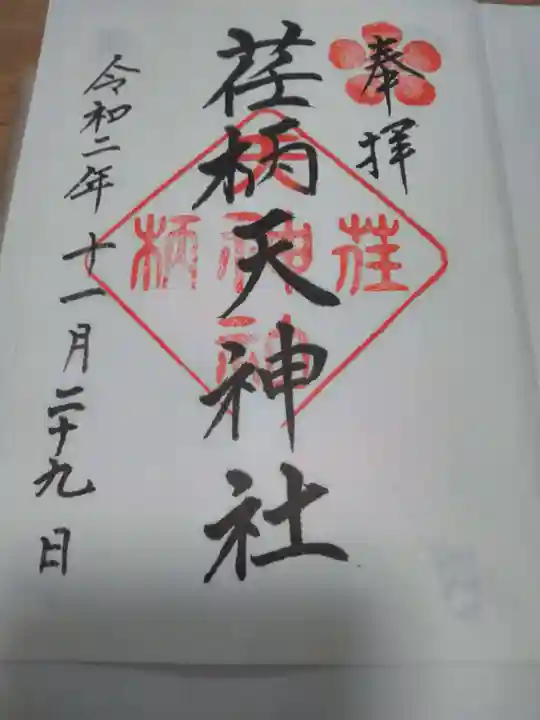 奉拝
荏柄天神社
令和二年十一月二十九日
荏
柄